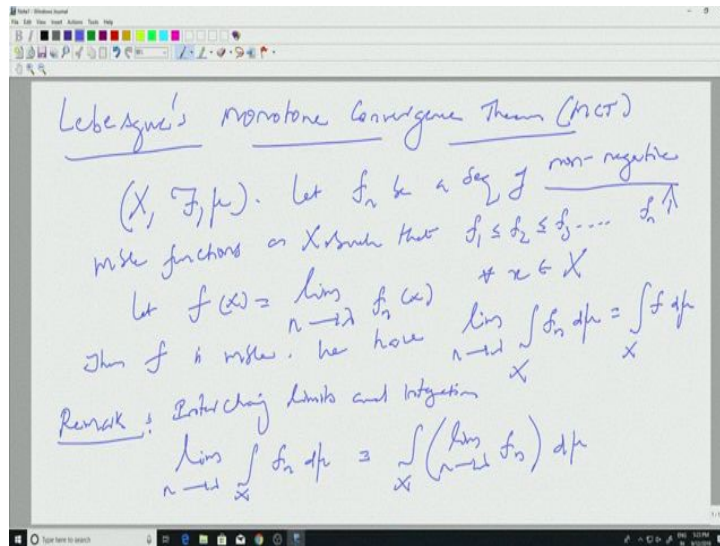 Note1 - Windows Journal
File Edit View Insert Actions Tools Help
Lebesgue's Monotone Convergence Theorem (MCT)
(X, F, μ). Let fn be a seq of non-negative
msle functions on X such that f1 ≤ f2 ≤ f3 .... fn ↑
Let f(x) = lim n→∞ fn(x) ∀ x ∈ X
Then f is msle. We have lim n→∞ ∫X fn dμ = ∫X f dμ
Remark : Interchang limits and Integration
lim n→∞ ∫X fn dμ = ∫X (lim n→∞ fn) dμ
Type here to search
ENG